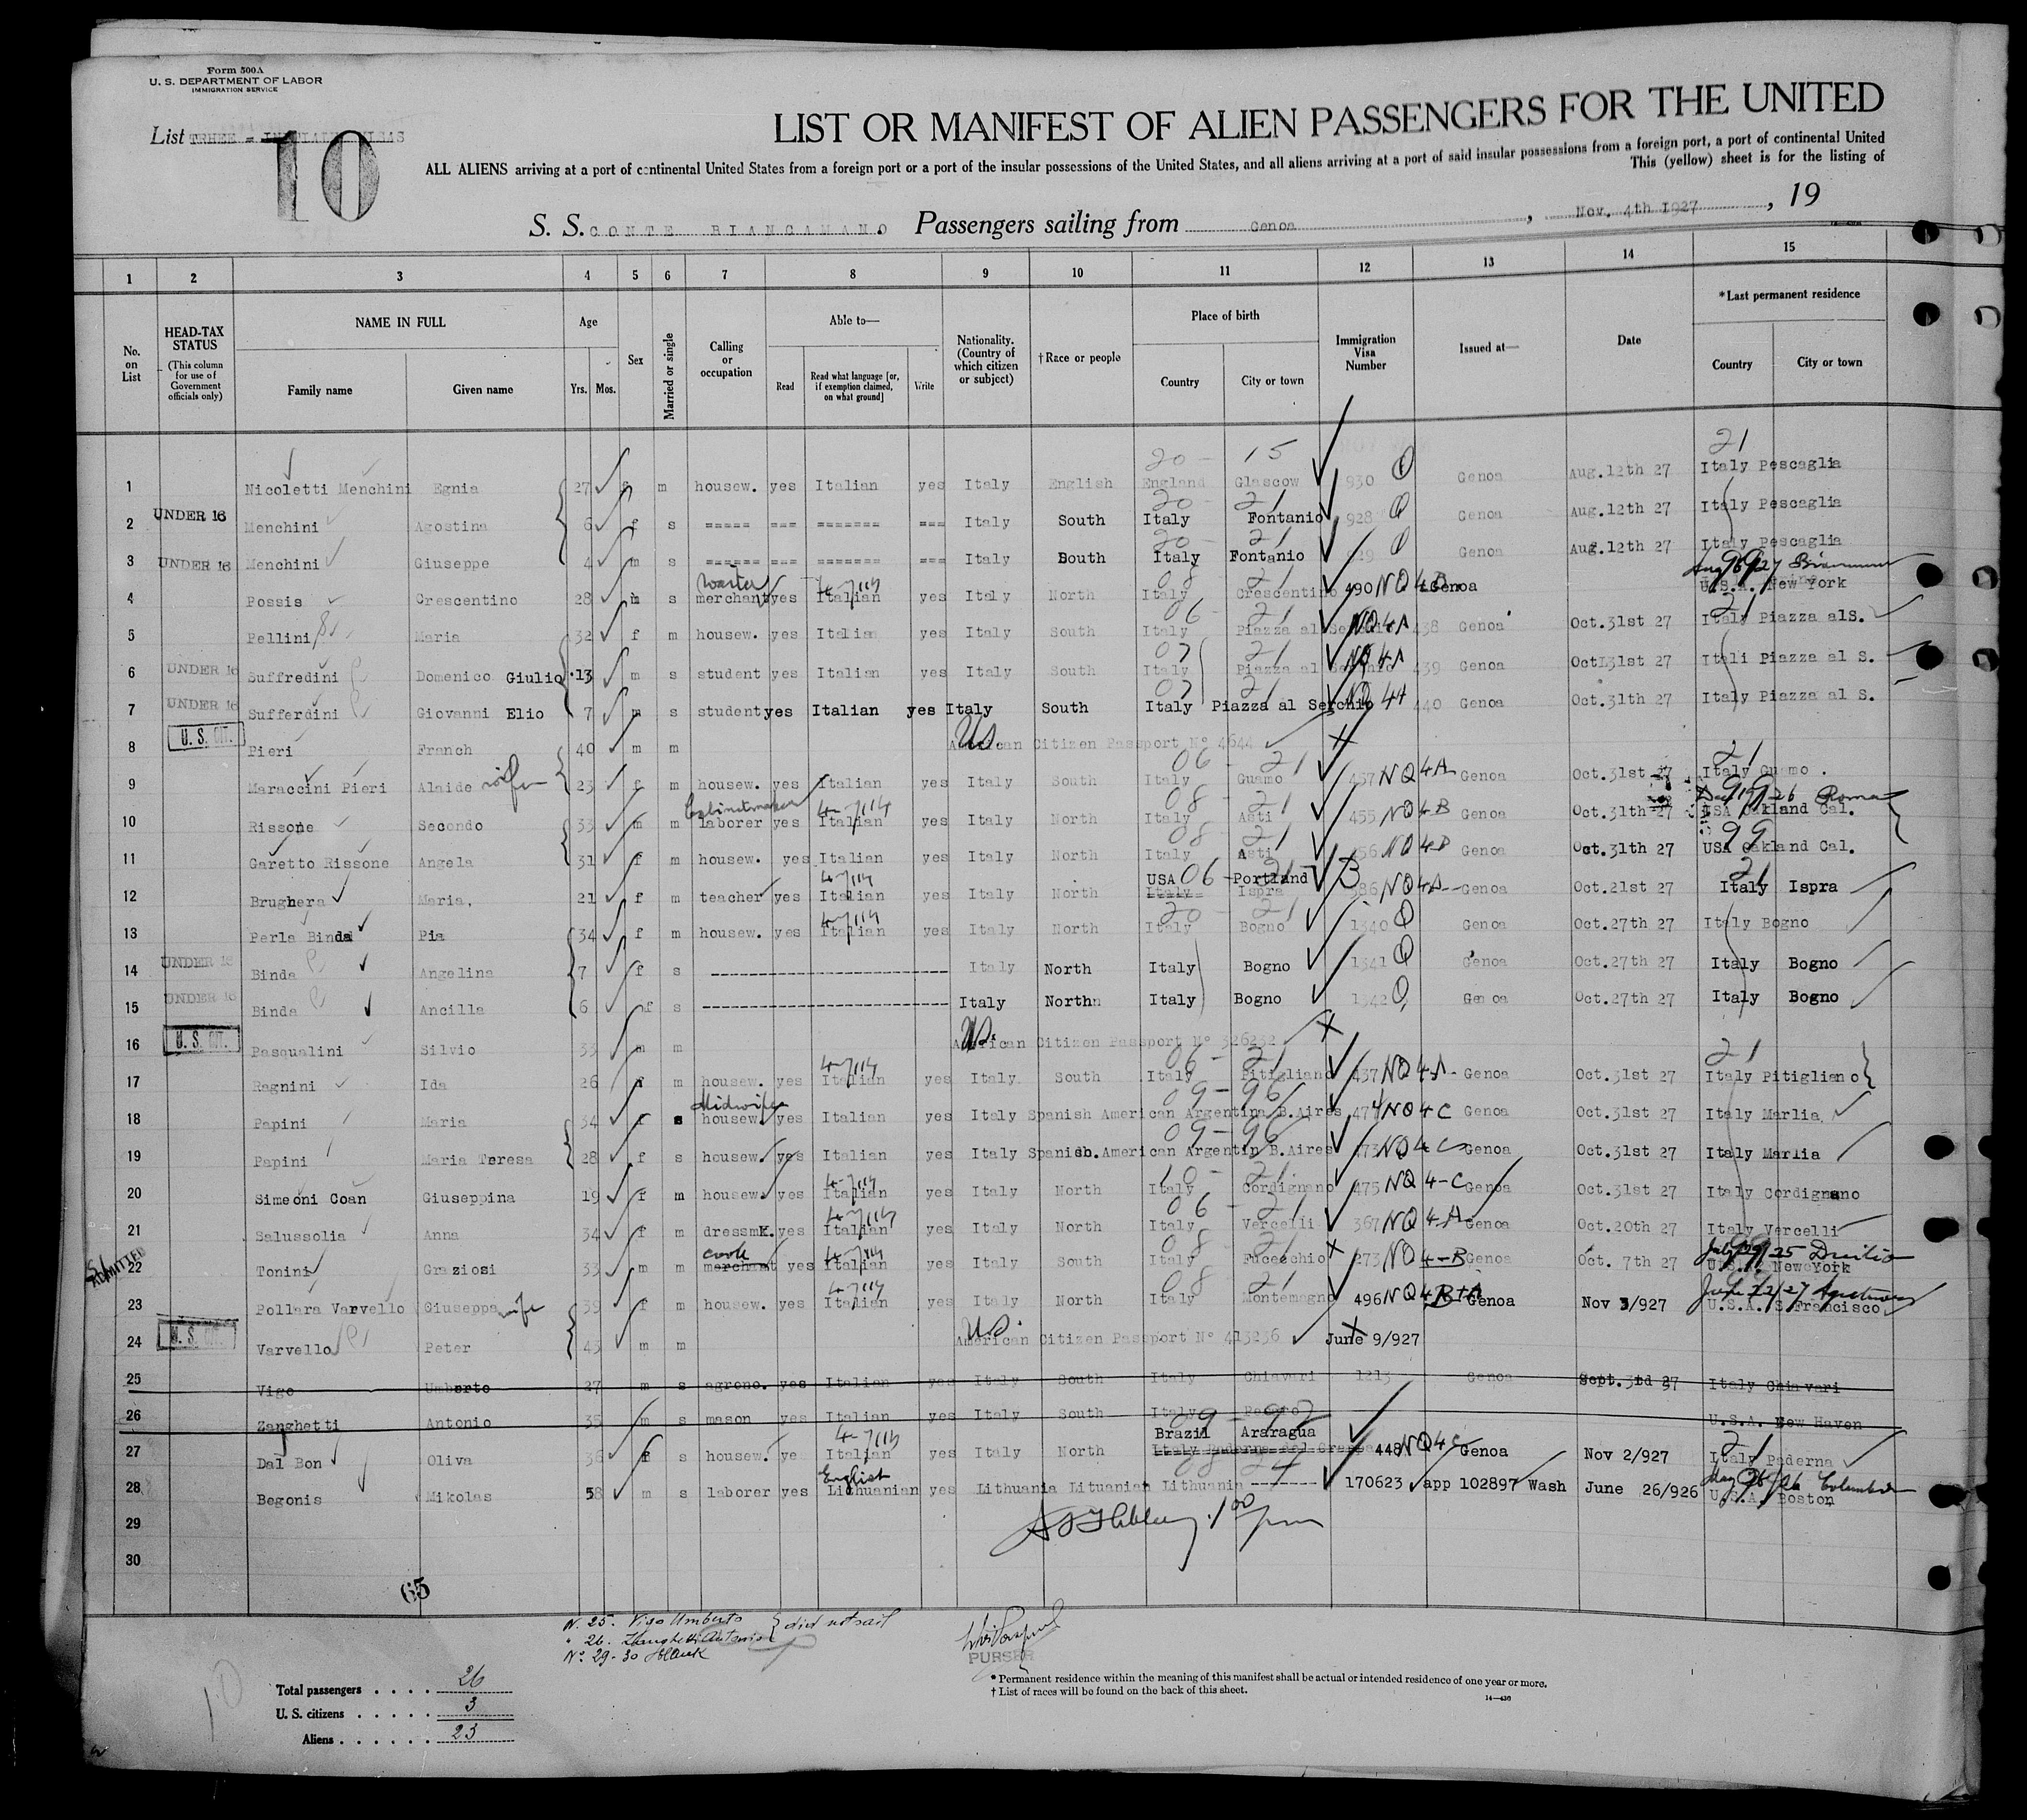 Form 500A
U. S. DEPARTMENT OF LABOR
IMMIGRATION SERVICE
List THREE
10
LIST OR MANIFEST OF ALIEN PASSENGERS FOR THE UNITED
ALL ALIENS arriving at a port of continental United States from a foreign port or a port of the insular possessions of the United States, and all aliens arriving at a port of said insular possessions from a foreign port, a port of continental United
This (yellow) sheet is for the listing of
S. S. CONTE BIANCAMANO Passengers sailing from Genoa , Nov. 4th 1927 , 19
1 2 3 4 5 6 7 8 9 10 11 12 13 14 15
No. on List
HEAD-TAX STATUS
(This column for use of Government officials only)
NAME IN FULL
Family name Given name
Age
Yrs. Mos.
Sex
Married or single
Calling or occupation
Able to—
Read Read what language [or, if exemption claimed, on what ground] Write
Nationality. (Country of which citizen or subject)
† Race or people
Place of birth
Country City or town
Immigration Visa Number
Issued at—
Date
*Last permanent residence
Country City or town
20 - 15 21
1 Nicoletti Menchini Egnia 27 f m housew. yes Italian yes Italy English England Glascow 930 Genoa Aug.12th 27 Italy Pescaglia
20 - 21
2 UNDER 16 Menchini Agostina 6 f s ===== === ======= === Italy South Italy Fontanio 928 Genoa Aug.12th 27 Italy Pescaglia
20 - 21
3 UNDER 16 Menchini Giuseppe 4 m s ======== === ======= === Italy South Italy Fontanio Genoa Aug.12th 27 Italy Pescaglia
waiter 4-7114 08 21 99
4 Possis Crescentino 28 m s merchant yes Italian yes Italy North Italy Crescentino 490 NQ 4B Genoa U.S.A. New York
06 - 21 21
5 Pellini Maria 32 f m housew. yes Italian yes Italy South Italy Piazza al Serchio NQ 4A 438 Genoa Oct.31st 27 Italy Piazza alS.
07 21
6 UNDER 16 Suffredini Domenico Giulio 13 m s student yes Italian yes Italy South Italy Piazza al Serchio NQ 4A 439 Genoa Oct131st 27 Itali Piazza al S.
07 21
7 UNDER 16 Sufferdini Giovanni Elio 7 m s student yes Italian yes Italy South Italy Piazza al Serchio NQ 4A 440 Genoa Oct.31th 27 Italy Piazza al S.
8 U. S. CIT. Pieri Franch 40 m m US American Citizen Passport N° 4644
06 - 21 21
9 Maraccini Pieri Alaide wife 23 f m housew. yes Italian yes Italy South Italy Guamo 457 NQ 4A Genoa Oct.31st 27 Italy Guamo .
Cabinetmaker 4-7114 08 - 21 Roma
10 Rissone Secondo 33 m m laborer yes Italian yes Italy North Italy Asti 455 NQ 4-B Genoa Oct.31th 27 USA Oakland Cal.
08 - 21 99
11 Garetto Rissone Angela 31 f m housew. yes Italian yes Italy North Italy Asti 456 NQ 4-B Genoa Oct.31th 27 USA Oakland Cal.
4-7114 USA 06 - Portland 21
12 Brughera Maria, 21 f m teacher yes Italian yes Italy North Italy Ispra 386 NQ 4A Genoa Oct.21st 27 Italy Ispra
4-7114 20 - 21
13 Perla Binda Pia 34 f m housew. yes Italian yes Italy North Italy Bogno 1340 Genoa Oct.27th 27 Italy Bogno
14 UNDER 16 Binda Angelina 7 f s Italy North Italy Bogno 1341 Genoa Oct.27th 27 Italy Bogno
15 UNDER 16 Binda Ancilla 6 f s Italy North Italy Bogno 1342 Genoa Oct.27th 27 Italy Bogno
16 U. S. CIT. Pasqualini Silvio 33 m m US. American Citizen Passport N° 326232
4-7114 06 - 21 21
17 Ragnini Ida 26 f m housew. yes Italian yes Italy. South Italy Pitigliano 437 NQ 4-A Genoa Oct.31st 27 Italy Pitigliano
Midwife 09 - 96
18 Papini Maria 34 f s housew. yes Italian yes Italy Spanish American Argentina B.Aires 474 NQ 4C Genoa Oct.31st 27 Italy Marlia
09 - 96
19 Papini Maria Teresa 28 f s housew. yes Italian yes Italy Spanish. American Argentin B.Aires 473 NQ 4C Genoa Oct.31st 27 Italy Marlia
4-7114 10 - 21
20 Simeoni Coan Giuseppina 19 f m housew. yes Italian yes Italy North Italy Cordignano 475 NQ 4-C Genoa Oct.31st 27 Italy Cordignano
4-7114 06 - 21
21 Salussolia Anna 34 f m dressmK. yes Italian yes Italy North Italy Vercelli 367 NQ 4-A Genoa Oct.20th 27 Italy Vercelli
ADMITTED cook 4-7114 08 21 99
22 Tonini Graziosi 33 m m merchant yes Italian yes Italy South Italy Fucecchio 273 NQ 4-B Genoa Oct. 7th 27 U.S.A. NewYork
4-7114 08 21
23 Pollara Varvello Giuseppa wife 39 f m housew. yes Italian yes Italy North Italy Montemagno 496 NQ 4B Genoa Nov 3/927 U.S.A. S.Francisco
24 U. S. CIT. Varvello Peter 43 m m US. American Citizen Passport N° 413236 June 9/927
25 Vigo Umberto 27 m s agrono. yes Italian yes Italy South Italy Chiavari 1213 Genoa Sept.3rd 27 Italy Chiavari
26 Zanghetti Antonio 35 m s mason yes Italian yes Italy South Italy Pesaro U.S.A. New Haven
4-7114 09 - 92 Brazil Araragua 21
27 Dal Bon Oliva 36 f s housew. ye Italian yes Italy North 448 NQ 4C Genoa Nov 2/927 Italy Paderna
English May 26/26 Columbus
28 Begonis Mikolas 58 m s laborer yes Lithuanian yes Lithuania Lituanian Lithuania ------- 170623 app 102897 Wash June 26/926 U.S.A. Boston
29
30
65
N. 25. Vigo Umberto } did not sail
" 26. Zanghetti Antonio
N° 29-30 Blank
PURSER
* Permanent residence within the meaning of this manifest shall be actual or intended residence of one year or more.
† List of races will be found on the back of this sheet.
14—430
10
Total passengers . . . . 26
U. S. citizens . . . . . 3
Aliens . . . . . . 23